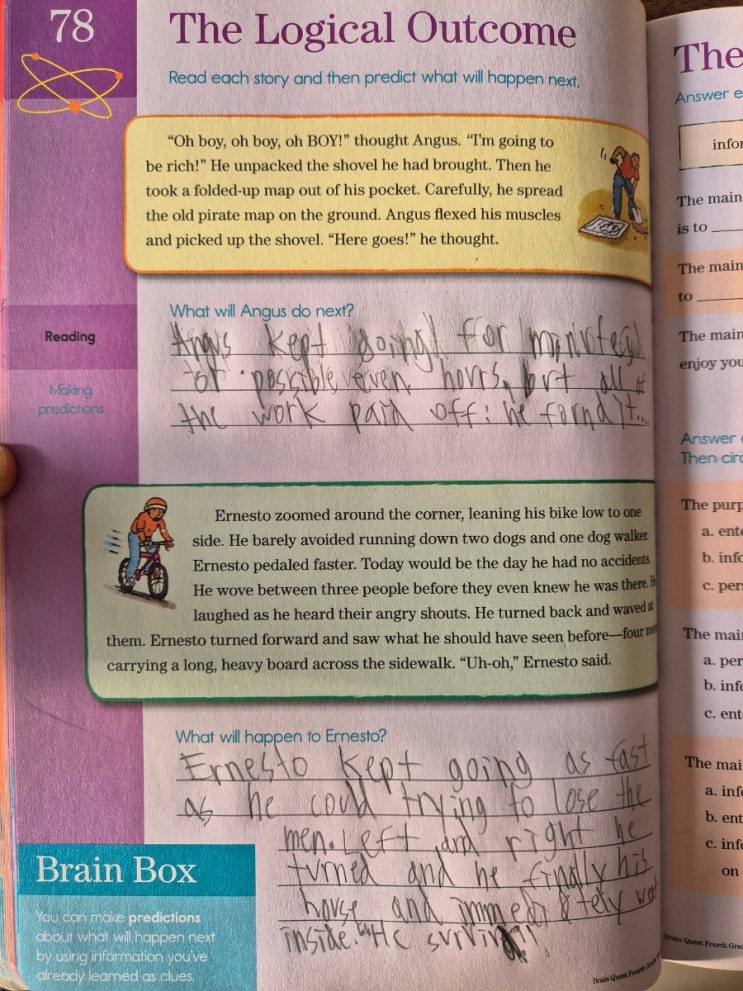 78
The Logical Outcome
Read each story and then predict what will happen next.
"Oh boy, oh boy, oh BOY!" thought Angus. "I'm going to
be rich!" He unpacked the shovel he had brought. Then he
took a folded-up map out of his pocket. Carefully, he spread
the old pirate map on the ground. Angus flexed his muscles
and picked up the shovel. "Here goes!" he thought.
Reading
Making
predictions
What will Angus do next?
Angus kept going! for minutes,
or possible even hours, but all of
the work paid off: he found it...
Ernesto zoomed around the corner, leaning his bike low to one
side. He barely avoided running down two dogs and one dog walker.
Ernesto pedaled faster. Today would be the day he had no accidents.
He wove between three people before they even knew he was there. He
laughed as he heard their angry shouts. He turned back and waved at
them. Ernesto turned forward and saw what he should have seen before—four men
carrying a long, heavy board across the sidewalk. "Uh-oh," Ernesto said.
What will happen to Ernesto?
Ernesto kept going as fast
as he could trying to lose the
men. Left and right he
turned and he finally his
house and immediately went
inside. "He
Brain Box
You can make predictions
about what will happen next
by using information you've
already learned as clues.
Brain Quest Fourth Grade
The
Answer
infor
The main
is to
The main
to
The main
enjoy you
Answer
Then circ
The purp
a. ente
b. info
c. per
The mai
a. per
b. info
c. ent
The mai
a. info
b. ent
c. info
on
Brain Quest Fourth Grad